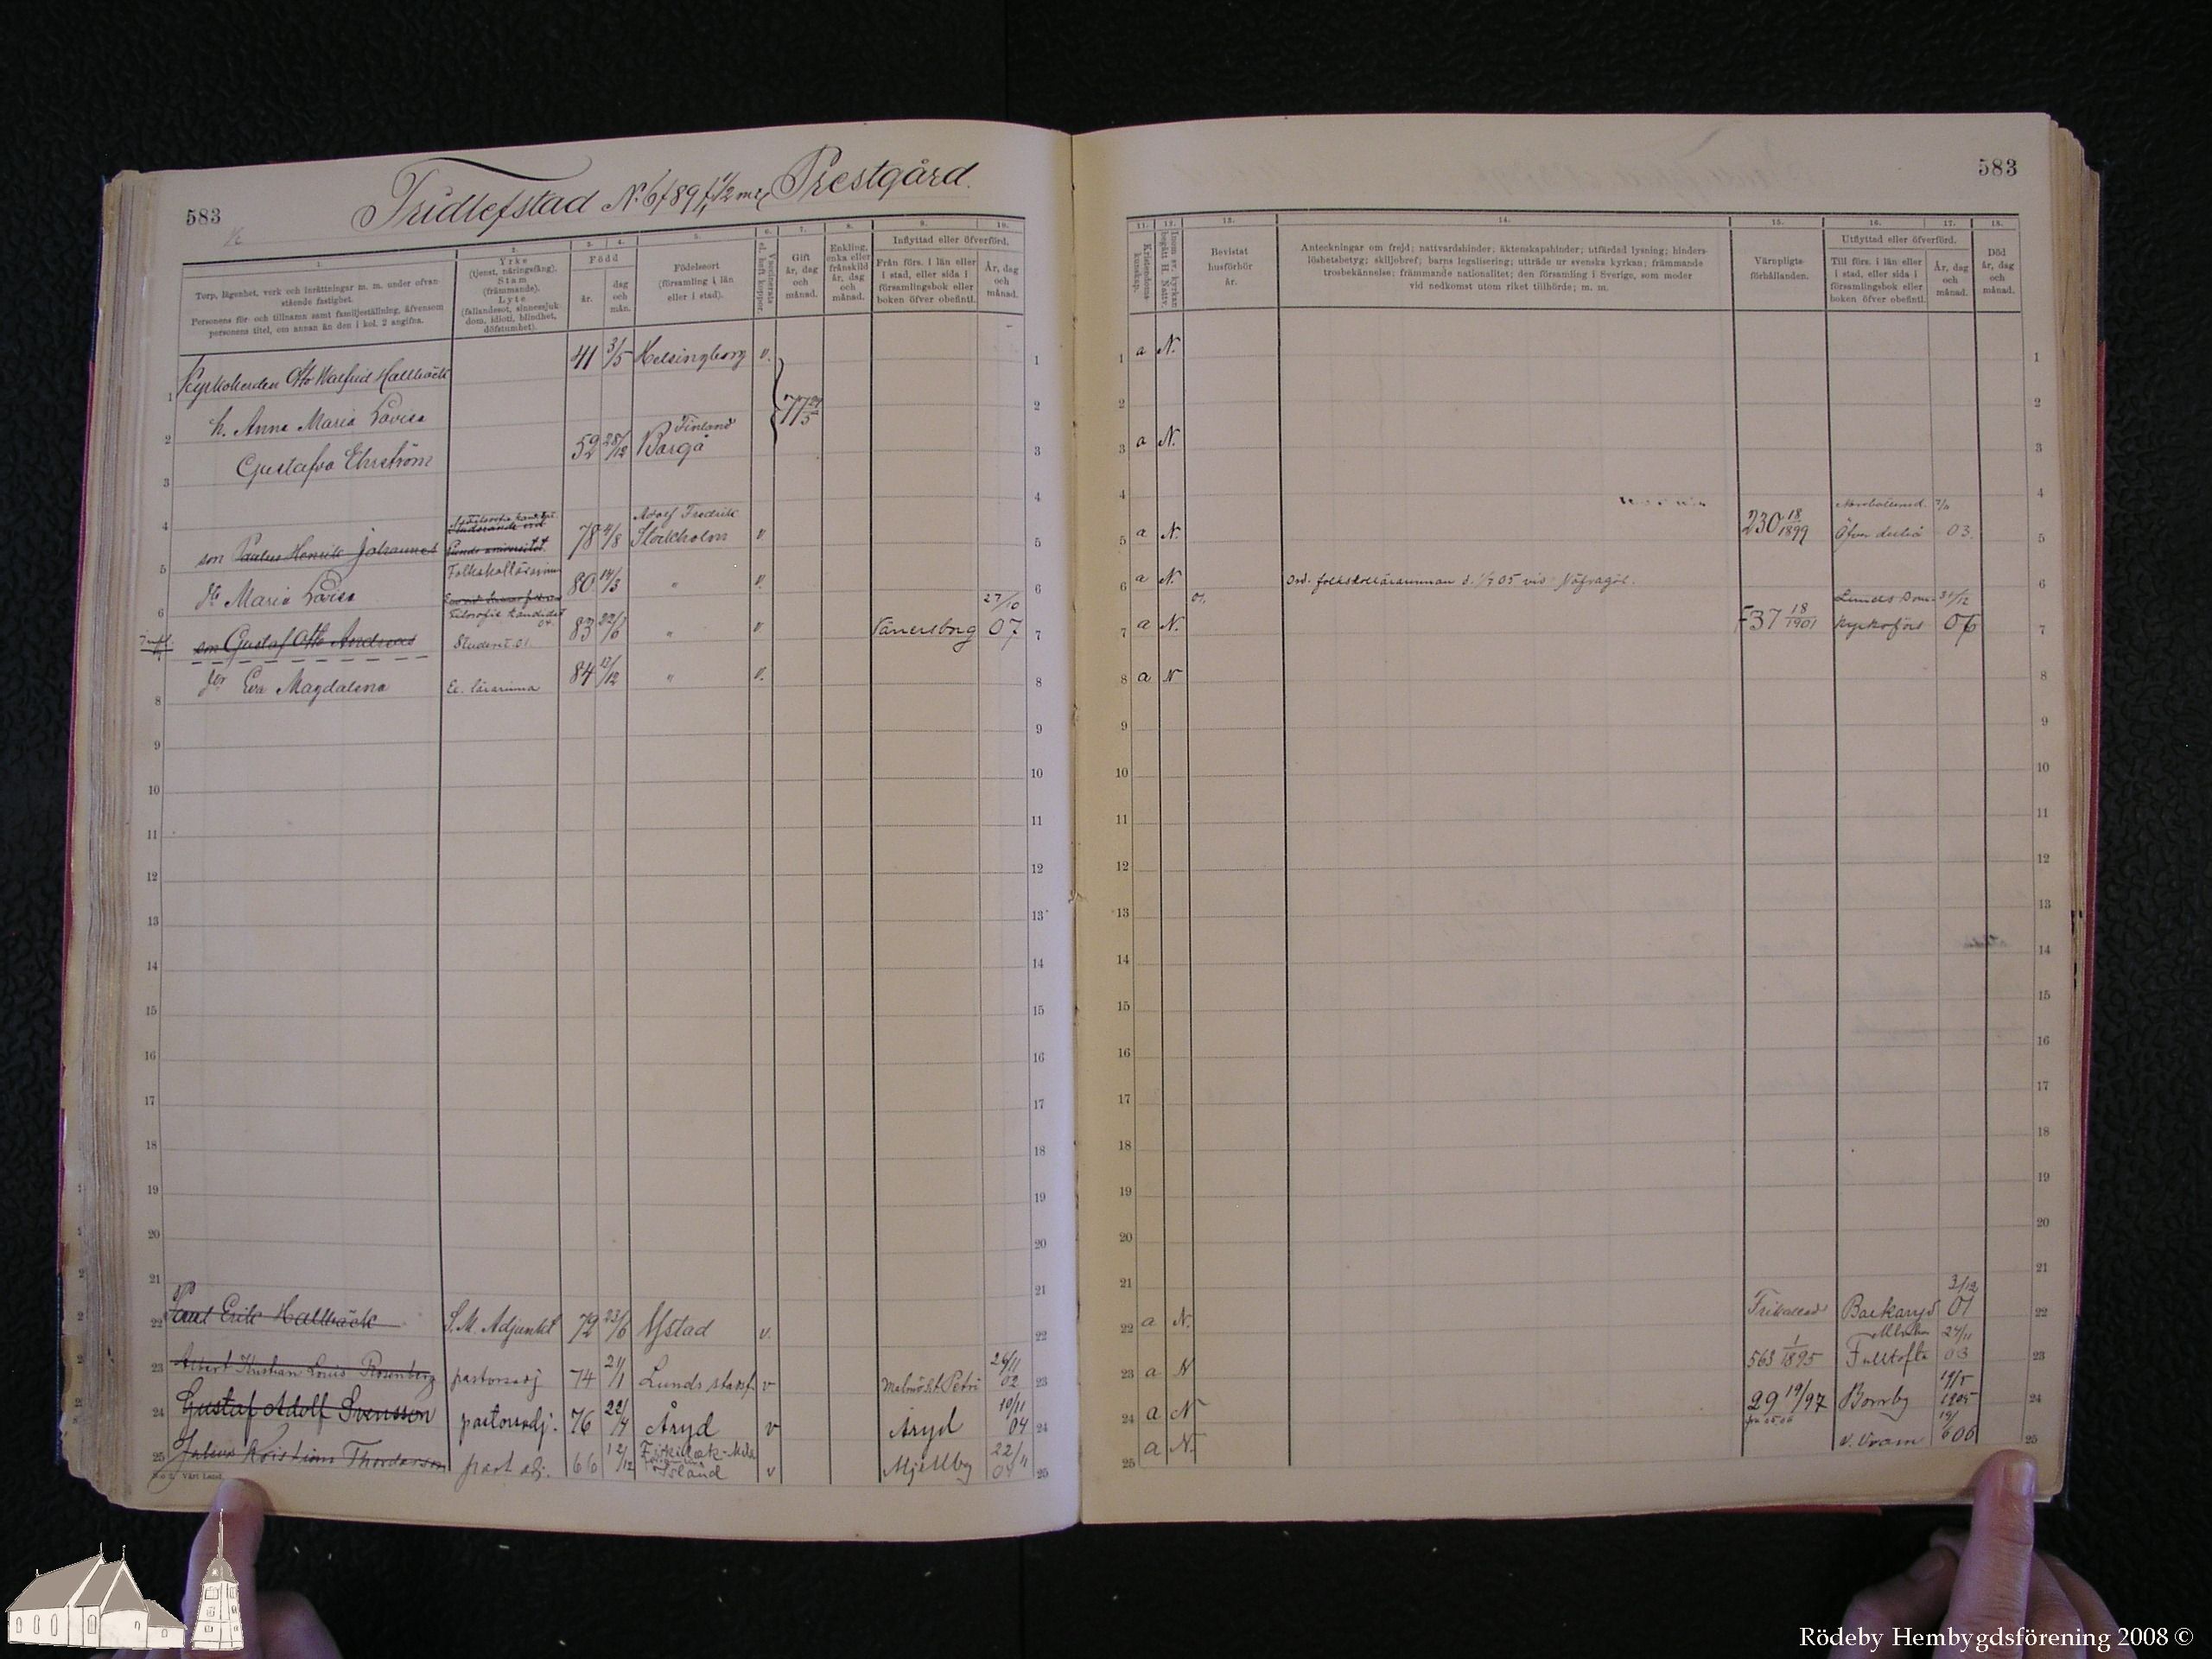 583
Fridlefstad No 6, 7, 8, 9, 1/2 ml, Prestgård.
583
1.
Torp, lägenhet, verk och inrättningar m. m. under ofvan
stående fastighet.
Personens för- och tillnamn samt familjeställning, äfvensom
personens titel, om annan än den i kol. 2 angifna.
2.
Yrke
(tjenst, näringsfång).
Stam
(främmande).
Lyte
(fallandesot, sinnessjuk-
dom, idioti, blindhet,
döfstumhet).
3.
4.
Född
år.
dag
och
mån.
5.
Födelseort
(församling i län
eller i stad).
6.
Vaccinerats
el. haft koppor.
7.
Gift
år, dag
och
månad.
8.
Enkling,
enka eller
frånskild
år, dag
och
månad.
9.
10.
Inflyttad eller öfverförd.
Från förs. i län eller
i stad, eller sida i
församlingsbok eller
boken öfver obefintl.
År, dag
och
månad.
11.
Kristendoms-
kunskap.
12.
Inom sv. kyrkan
begått H. Nattv.
13.
Bevistat
husförhör
år.
14.
Anteckningar om frejd; nattvardshinder; äktenskapshinder; utfärdad lysning; hinders
löshetsbetyg; skiljobref; barns legalisering; utträde ur svenska kyrkan; främmande
trosbekännelse; främmande nationalitet; den församling i Sverige, som moder
vid nedkomst utom riket tillhörde; m. m.
15.
Värnpligts
förhållanden.
16.
17.
Utflyttad eller öfverförd.
Till förs. i län eller
i stad, eller sida i
församlingsbok eller
boken öfver obefintl.
År, dag
och
månad.
18.
Död
år, dag
och
månad.
1 Kyrkoherden Otto Walfrid Hallbäck 41 3/5 Helsingborg v. 1 a N.
2 h. Anna Maria Lovisa 77 29/5 2
Finland
3 Gustafva Ehrström 52 28/12 Borgå 3 a N.
4
Adolf Fredrik
5 son Paulus Henrik Johannes Lunds universitet. 78 4/8 Stockholm v 5 a N. 230 18/1899 03.
6 dr Maria Lovisa Folkskollärarinna 80. 14/3 " v. 6 a N. Ord. folkskollärarinnan d. 1/7 05 vid Näfragöl.
Filosofie kandidat 27/10 Lunds Dom- 31/12
7 son Gustaf Otto Andreas Student 01 83 22/6 " v Vänersborg 07 7 a N. F37 18/1901 kyrkoförs 06
8 dtr Eva Magdalena Ex. lärarinna 84 13/12 " v. 8 a N
9
10
11
12
13
14
15
16
17
18
19
20
21
3/12
22 Paul Erik Hallbäck S. M. Adjunkt 72 23/6 Ystad v. 22 a N. Frikallad Backaryd 01
23 Albert Kristian Louis Rosenberg pastorsadj 74 21/1 Lunds stadsf. v Malmö S:t Petri 26/11 02 23 a N 563 1/1895 Fulltofta 24/11 03
24 Gustaf Adolf Svensson pastorsadj. 76 22/4 Åryd v Åryd 10/11 04 24 a N 29 19/97 19/5 1905
25 Julius Kristian Thordarson past adj. 66 12/12 Island v Mjellby 22/11 25 a N. V. Vram 19/6 06
Rödeby Hembygdsförening 2008 ©